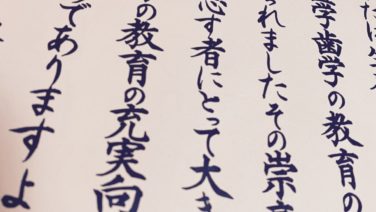 学歯学の教育の
られましたその崇
志す者にとって大き
の教育の充実向
でありますよ